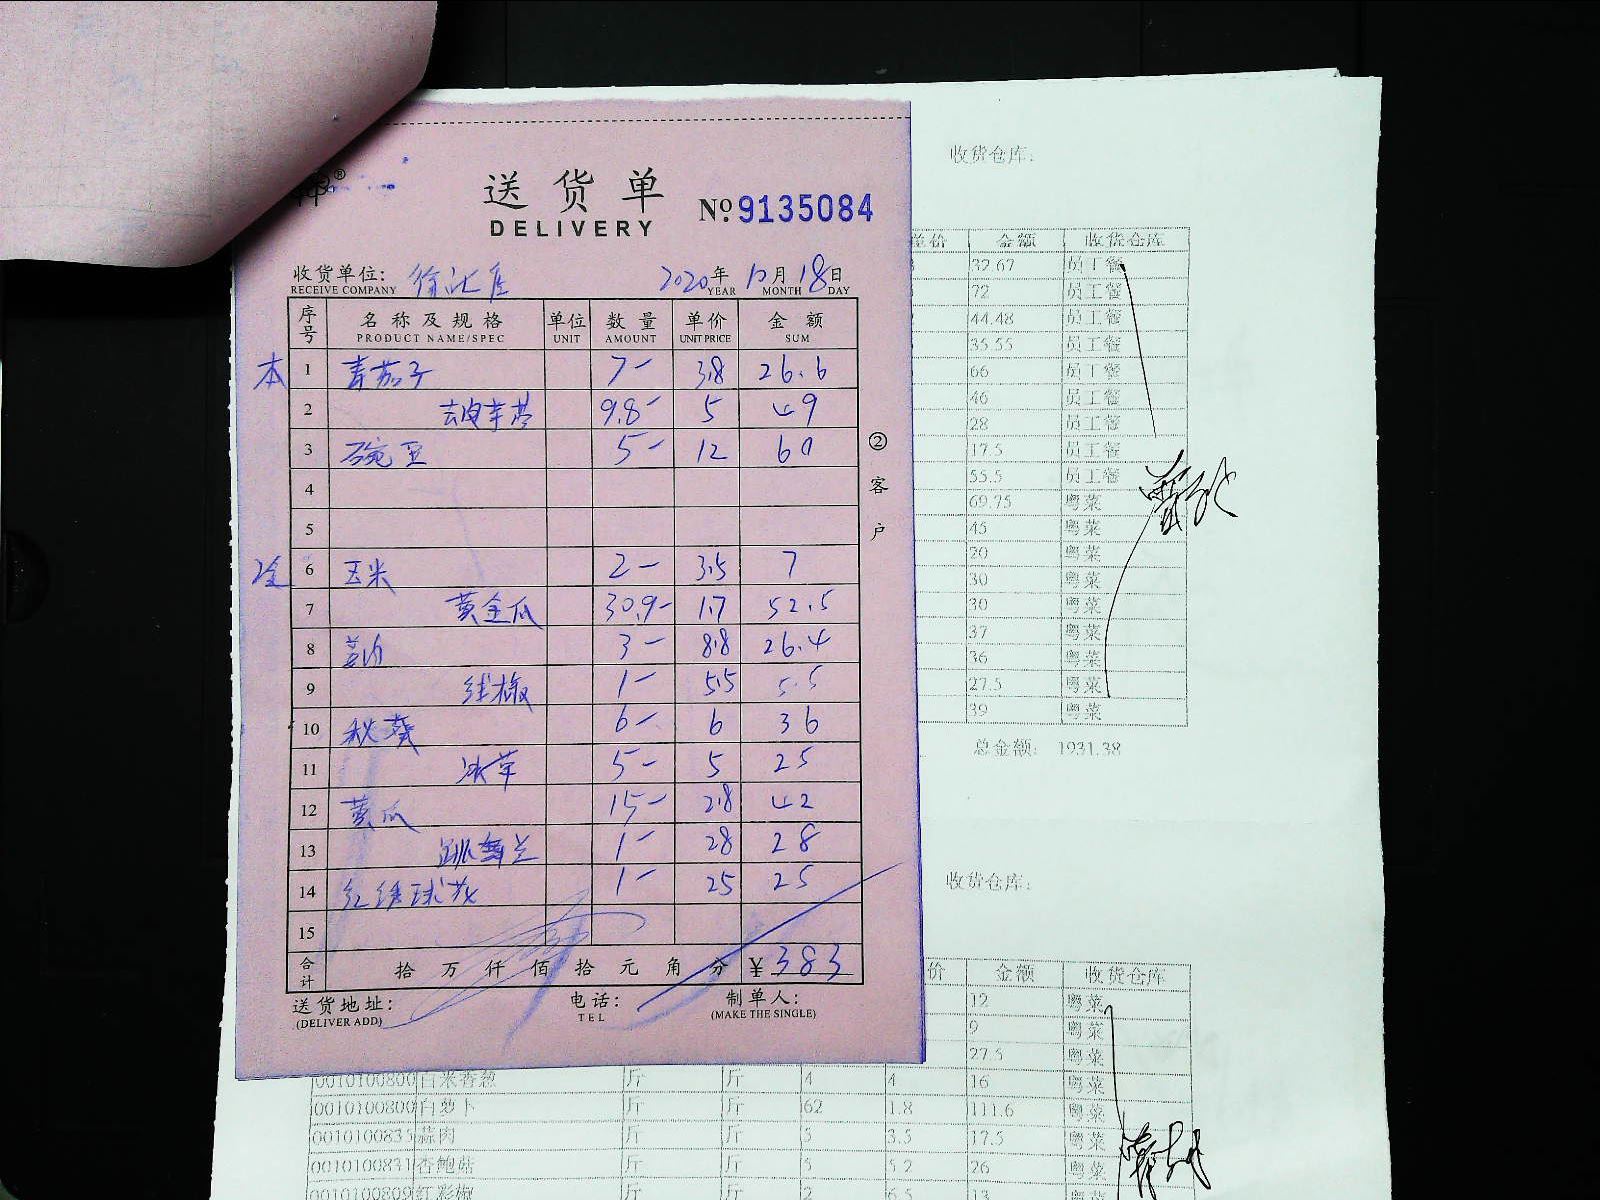 送货单
DELIVERY
№ 9135084
收货单位: 徐汇店 2020年 10月 18日
RECEIVE COMPANY YEAR MONTH DAY
序号 名称及规格 单位 数量 单价 金额
PRODUCT NAME/SPEC UNIT AMOUNT UNIT PRICE SUM
本 1 青茄子 7- 3.8 26.6
2 去皮芋艿 9.8- 5 49
3 碗豆 5- 12 60
4
5
冷 6 玉米 2- 3.5 7
7 黄金瓜 30.9- 1.7 52.5
8 3- 8.8 26.4
9 线椒 1- 5.5 5.5
10 秋葵 6- 6 36
11 冰草 5- 5 25
12 黄瓜 15- 2.8 42
13 跳舞兰 1- 28 28
14 红绣球花 1- 25 25
15
合计 拾 万 仟 佰 拾 元 角 分 ¥383
送货地址: 电话: 制单人:
(DELIVER ADD) TEL (MAKE THE SINGLE)
② 客户
收货仓库:
单价 金额 收货仓库
32.67 员工餐
72 员工餐
44.48 员工餐
35.55 员工餐
66 员工餐
46 员工餐
28 员工餐
17.5 员工餐
55.5 员工餐
69.75 粤菜
45 粤菜
20 粤菜
30 粤菜
30 粤菜
37 粤菜
36 粤菜
27.5 粤菜
39 粤菜
总金额: 1931.38
收货仓库:
价 金额 收货仓库
12 粤菜
9 粤菜
27.5 粤菜
0010100800 百米香葱 斤 斤 4 4 16 粤菜
0010100800 白萝卜 斤 斤 62 1.8 111.6 粤菜
0010100835 蒜肉 斤 斤 5 3.5 17.5 粤菜
0010100831 杏鲍菇 斤 斤 5 5.2 26 粤菜
0010100809 红彩椒 斤 斤 2 6.5 13 粤菜